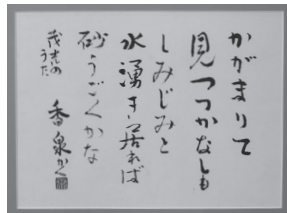 かがまりて
見つつかなしも
しみじみと
水湧き居れば
砂うごくかな
茂吉の
うた
香泉かく